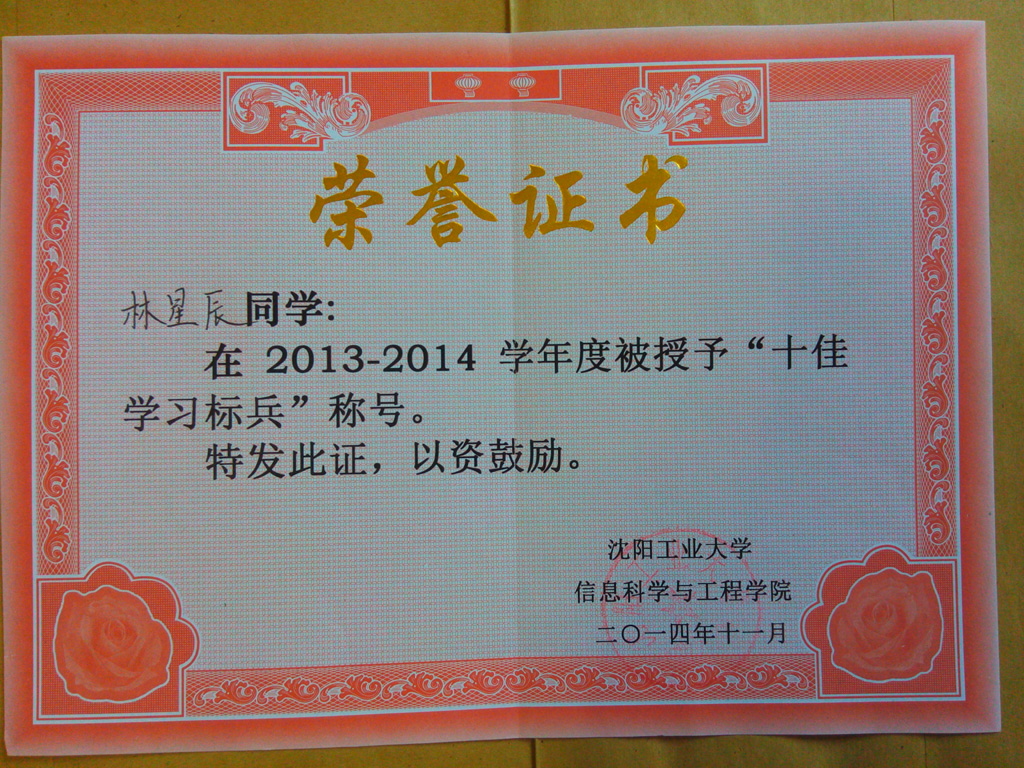 荣誉证书
林星辰同学:
在 2013-2014 学年度被授予“十佳
学习标兵”称号。
特发此证，以资鼓励。
沈阳工业大学
信息科学与工程学院
二〇一四年十一月